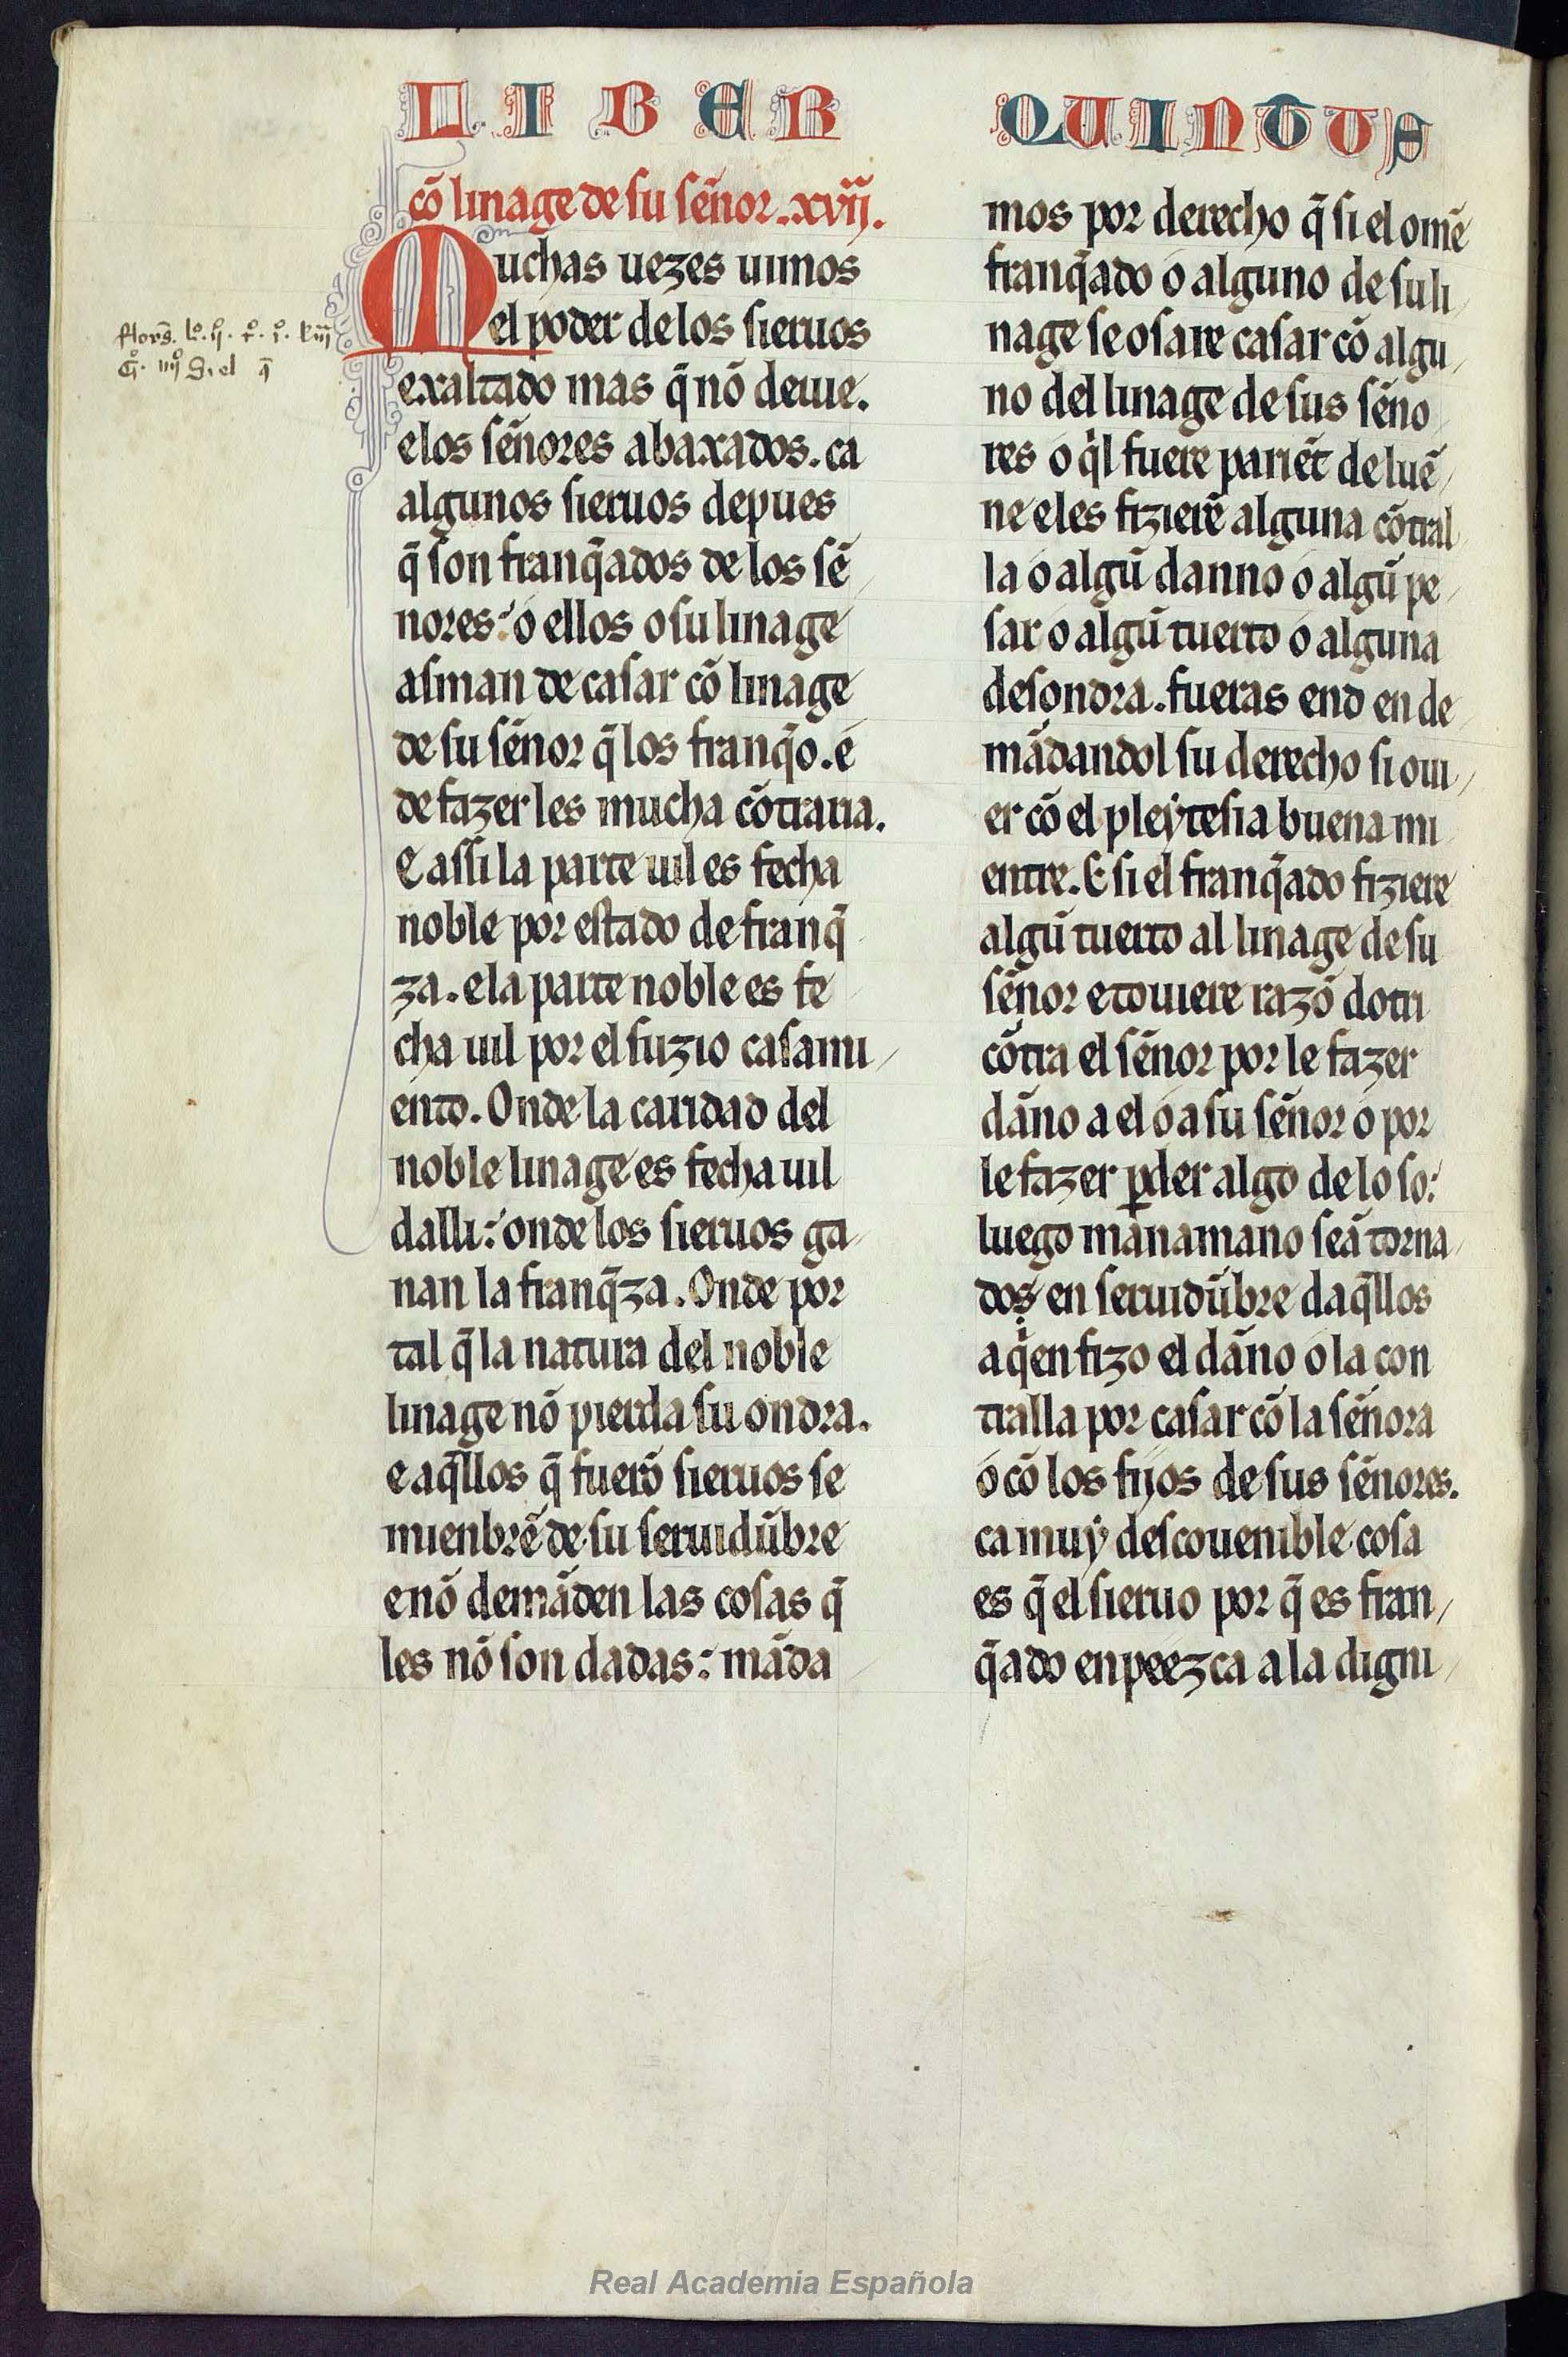 LIBER QUINTUS
cō linage de su señor .xvij.
Muchas uezes uimos
el poder de los sieruos
exaltado mas q̄ nō deuie.
e los señores abaxados. ca
algunos sieruos depues
q̄ son franq̄ados de los sē
nores: o ellos o su linage
asman de casar cō linage
de su señor q̄ los franq̄o. e
de fazer les mucha cōtraria.
E assi la parte uil es fecha
noble por estado de franq̄
za. e la parte noble es fe
cha uil por el suzio casami
ento. Onde la caridad del
noble linage es fecha uil
dalli: onde los sieruos ga
nan la franq̄za. Onde por
tal q̄ la natura del noble
linage nō pierda su ondra.
e aq̄llos q̄ fuerō sieruos se
mienbrē de su seruidūbre
e nō demāden las cosas q̄
les nō son dadas: māda
mos por derecho q̄ si el omē
franq̄ado o alguno de su li
nage se osare casar cō algu
no del linage de sus seño
res o q̄l fuere pariēt de luē
ne e les fizierē alguna cōtral
la o algū danno o algū pe
sar o algū tuerto o alguna
desondra. fueras end en de
mādandol su derecho si oui
er cō el pleẏtesia buena mi
entre. E si el franq̄ado fiziere
algū tuerto al linage de su
señor e touiere razō dotri
cōtra el señor por le fazer
dāno a el o a su señor o por
le fazer ꝑder algo de lo so:
luego manamano seā torna
dos en seruidūbre daq̄llos
a qien fizo el dāno o la con
tralla por casar cō la señora
o cō los fijos de sus señores.
ca muẏ descouenible cosa
es q̄ el sieruo por q̄ es fran
q̄ado enpeezca a la digni
Real Academia Española